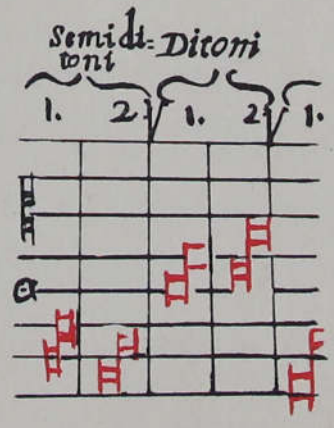 Semidi= Ditoni
toni
1. 2 1. 2 1.